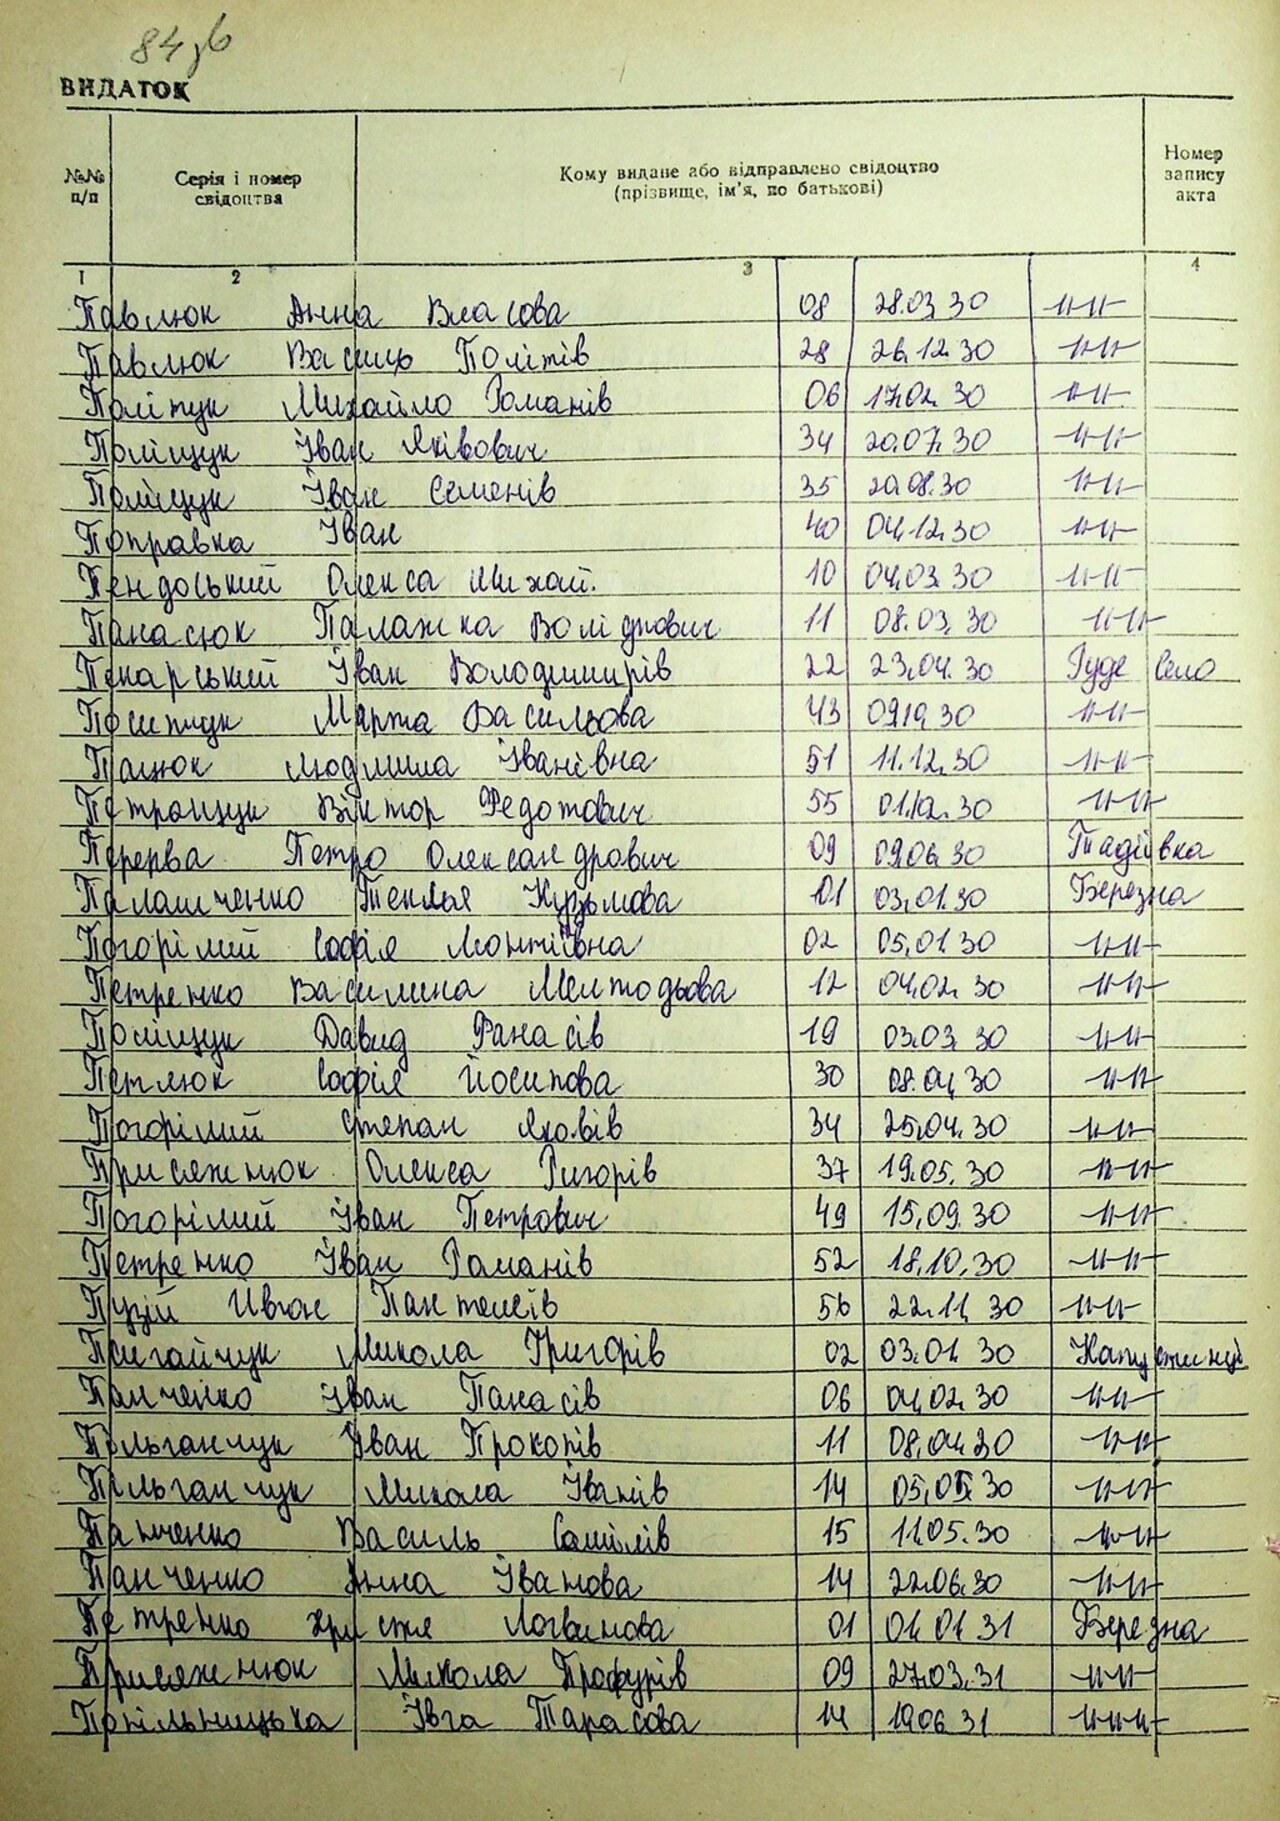 84зв
ВИДАТОК
№№ п/п
Серія і номер свідоцтва
Кому видане або відправлено свідоцтво (прізвище, ім'я, по батькові)
Номер запису акта
1 2 3 4
Павлюк Анна Власова 08 28.03 30 -"-"-
Павлюк Василь Політів 28 26.12.30 -"-"-
Політук Михайло Романів 06 17.02. 30 -"-"-
Поліщук Іван Яківович 34 20.07.30 -"-"-
Поліщук Іван Семенів 35 20.08.30 -"-"-
Поправка Іван 40 04.12.30 -"-"-
Пендоський Олекса Михай. 10 04.03.30 -"-"-
Панасюк Палажка 11 08.03.30 -"-"-
Пекарський Іван Володимирів 22 23.04.30 Руде Село
Марта Васильова 43 09.10.30 -"-"-
Пацюк Людмила Іванівна 51 11.12.30 -"-"-
Петращук Віктор Федотович 55 -"-"-
Перерва Петро Олександрович 09 09.06.30 Тадіївка
Палашченко Текля Кузьмова 01 03.01.30 Березна
Погорілий Софія Леонтіївна 02 05.01.30 -"-"-
Петренко Василина Мелтодьова 12 04.02. 30 -"-"-
Поліщук Давид Фанасів 19 03.03. 30 -"-"-
Петлюк Софія Йосипова 30 08.04. 30 -"-"-
Погорілий Степан Яковів 34 25.04. 30 -"-"-
Присяженюк Олекса Ригорів 37 19.05. 30 -"-"-
Погорілий Іван Петрович 49 15.09.30 -"-"-
Петренко Іван Романів 52 18.10.30 -"-"-
Пузій Иван Пантелеїв 56 22.11. 30 -"-"-
Микола Григорів 02 03.01. 30
Панченко Іван Панасів 06 04.02.30 -"-"-
Пільганчук Іван Прокопів 11 08.04.30 -"-"-
Пільганчук Микола Іванів 14 05.05.30 -"-"-
Панченко Василь Самілів 15 11.05.30 -"-"-
Панченко Анна Іванова 14 22.06.30 -"-"-
Петренко Христя Логвинова 01 01.01.31 Березна
Присяженюк Микола 09 27.03.31 -"-"-
Івга Тарасова 14 19.06 31 -"-"-"-